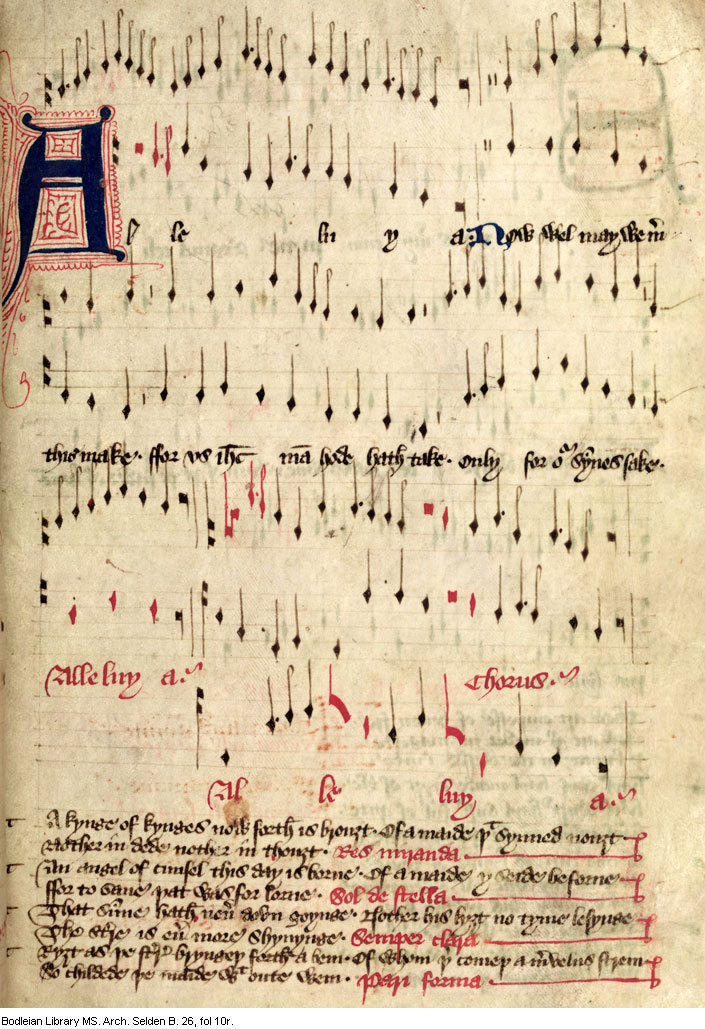 Al le lu y a Now wel may we m̄
this make. ffor vs ihc̄ mā hode hath take. only for oʳ synes sake.
Alleluy a.
Chorus.
Al le luy a.
A kynge of kynges now forth is brouȝt. Of a maide þᵗ synned nouȝt
Nother in dede nether in thouȝt. Res miranda
An angel of cunsel this day is borne. Of a maide y seide beforne
ffor to saue þat was for lorne. Sol de stella
That sunne hath neuer dovn goynge. Nother his lyȝt no tyme lesynge
The sterre is euer more shynynge. Semper clara
Ryȝt as þe sterre bryngeþ forth a bem. Of whom þer comeþ a mervelus strem
So childede þe maide wᵗ oute wem. Pari forma
Bodleian Library MS. Arch. Selden B. 26, fol 10r.